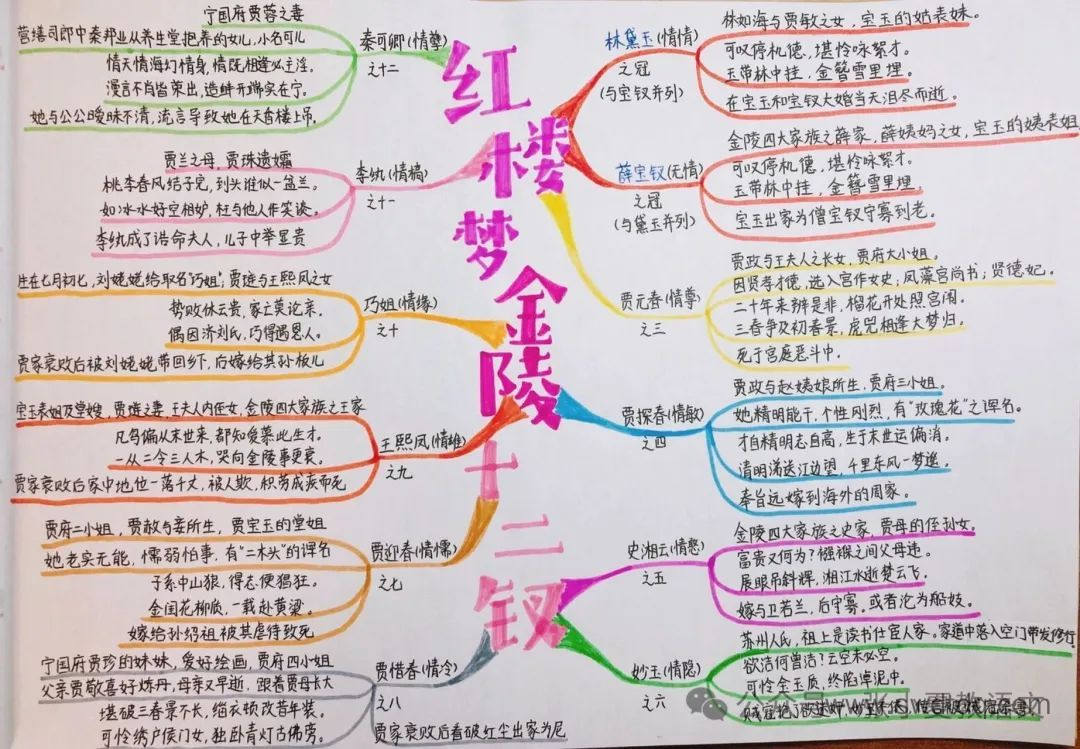 红楼梦金陵十二钗
林黛玉(情情)
之冠
(与宝钗并列)
林如海与贾敏之女，宝玉的姑表妹。
可叹停机德，堪怜咏絮才。
玉带林中挂，金簪雪里埋。
在宝玉和宝钗大婚当天泪尽而逝。
薛宝钗(无情)
之冠
(与黛玉并列)
金陵四大家族之薛家，薛姨妈之女，宝玉的姨表姐
可叹停机德，堪怜咏絮才。
玉带林中挂，金簪雪里埋。
宝玉出家为僧宝钗守寡到老。
贾元春(情尊)
之三
贾政与王夫人之长女，贾府大小姐。
因贤孝才德，选入宫作女史；凤藻宫尚书；贤德妃。
二十年来辨是非，榴花开处照宫闱。
三春争及初春景，虎兕相逢大梦归。
死于宫庭恶斗中。
贾探春(情敏)
之四
贾政与赵姨娘所生，贾府三小姐。
她精明能干，个性刚烈，有“玫瑰花”之诨名。
才自精明志自高，生于末世运偏消。
清明涕送江边望，千里东风一梦遥。
奉旨远嫁到海外的周家。
史湘云(情憨)
之五
金陵四大家族之史家，贾母的侄孙女。
富贵又何为？襁褓之间父母违。
展眼吊斜辉，湘江水逝楚云飞。
嫁与卫若兰，后守寡。或者沦为船妓。
妙玉(情隐)
之六
苏州人氏，祖上是读书仕宦人家。家道中落入空门带发修行。
欲洁何曾洁！云空未必空。
可怜金玉质，终陷淖泥中。
贾迎春(情懦)
之七
贾府二小姐，贾赦与妾所生，贾宝玉的堂姐
她老实无能，懦弱怕事，有“二木头”的诨名
子系中山狼，得志便猖狂。
金闺花柳质，一载赴黄粱。
嫁给孙绍祖被其虐待致死
贾惜春(情冷)
之八
宁国府贾珍的妹妹，爱好绘画，贾府四小姐
父亲贾敬喜好炼丹，母亲又早逝，跟着贾母长大
堪破三春景不长，缁衣顿改昔年装。
可怜绣户侯门女，独卧青灯古佛旁。
贾家衰败后看破红尘出家为尼
王熙凤(情雄)
之九
宝玉表姐及堂嫂，贾琏之妻，王夫人内侄女，金陵四大家族之王家
凡鸟偏从末世来，都知爱慕此生才。
一从二令三人木，哭向金陵事更哀。
贾家衰败后家中地位一落千丈，被人欺，积劳成疾而死
巧姐(情缘)
之十
生在七月初七，刘姥姥给取名“巧姐”，贾琏与王熙凤之女
势败休云贵，家亡莫论亲。
偶因济刘氏，巧得遇恩人。
贾家衰败后被刘姥姥带回乡下，后嫁给其孙板儿
李纨(情槁)
之十一
贾兰之母，贾珠遗孀
桃李春风结子完，到头谁似一盆兰。
如冰水好空相妒，枉与他人作笑谈。
李纨成了诰命夫人，儿子中举显贵
秦可卿(情孽)
之十二
宁国府贾蓉之妻
营缮司郎中秦邦业从养生堂抱养的女儿，小名可儿
情天情海幻情身，情既相逢必主淫。
漫言不肖皆荣出，造衅开端实在宁。
她与公公暧昧不清，流言导致她在天香楼上吊。